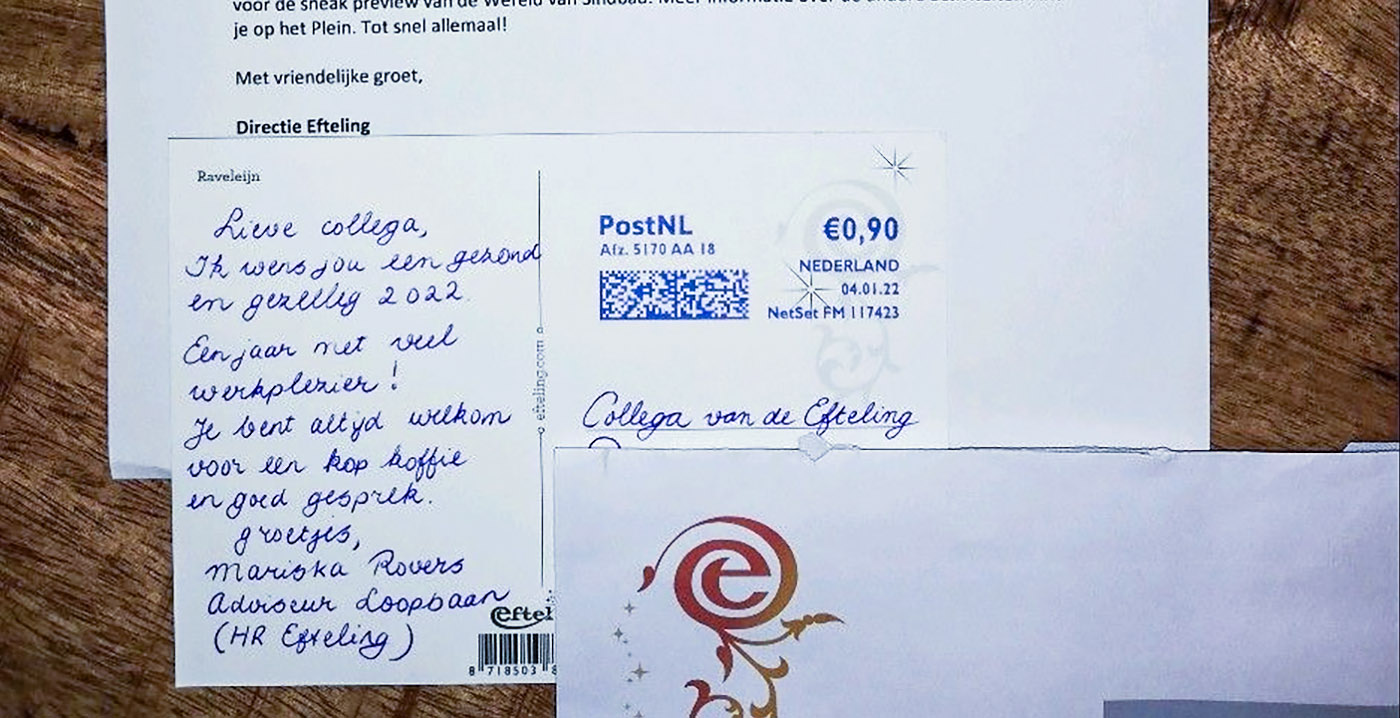 voor de sneak preview van de Wereld van Sindbad. Meer informatie over de
je op het Plein. Tot snel allemaal!
Met vriendelijke groet,
Directie Efteling
Raveleijn
Lieve collega,
Ik wens jou een gezond
en gezellig 2022.
Een jaar met veel
werkplezier!
Je bent altijd welkom
voor een kop koffie
en goed gesprek.
groetjes,
Mariska Rovers
Adviseur Loopbaan
(HR Efteling)
efteling.com
Eftel
8 718503 8
PostNL
Afz. 5170 AA 18
€0,90
NEDERLAND
04.01.22
NetSet FM 117423
Collega van de Efteling
e